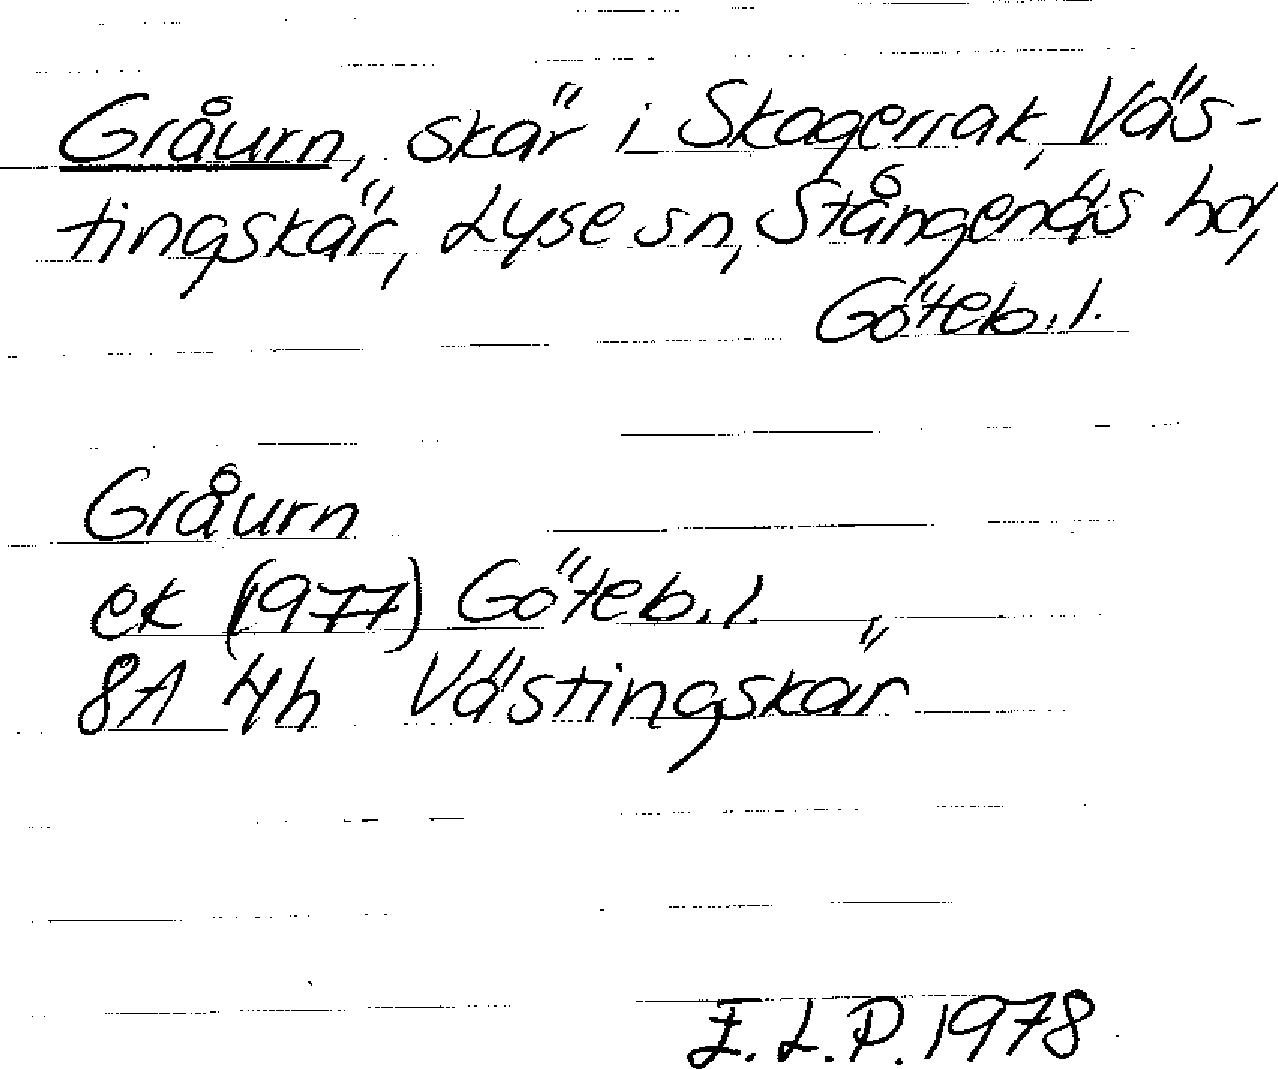 Gråurn, skär i Skagerrak, Väs-
tingskär, Lyse sn, Stångenäs hd,
Göteb. l.
Gråurn
ek (1977) Göteb. l.
8A 4h Västingskär
E. L. P. 1978